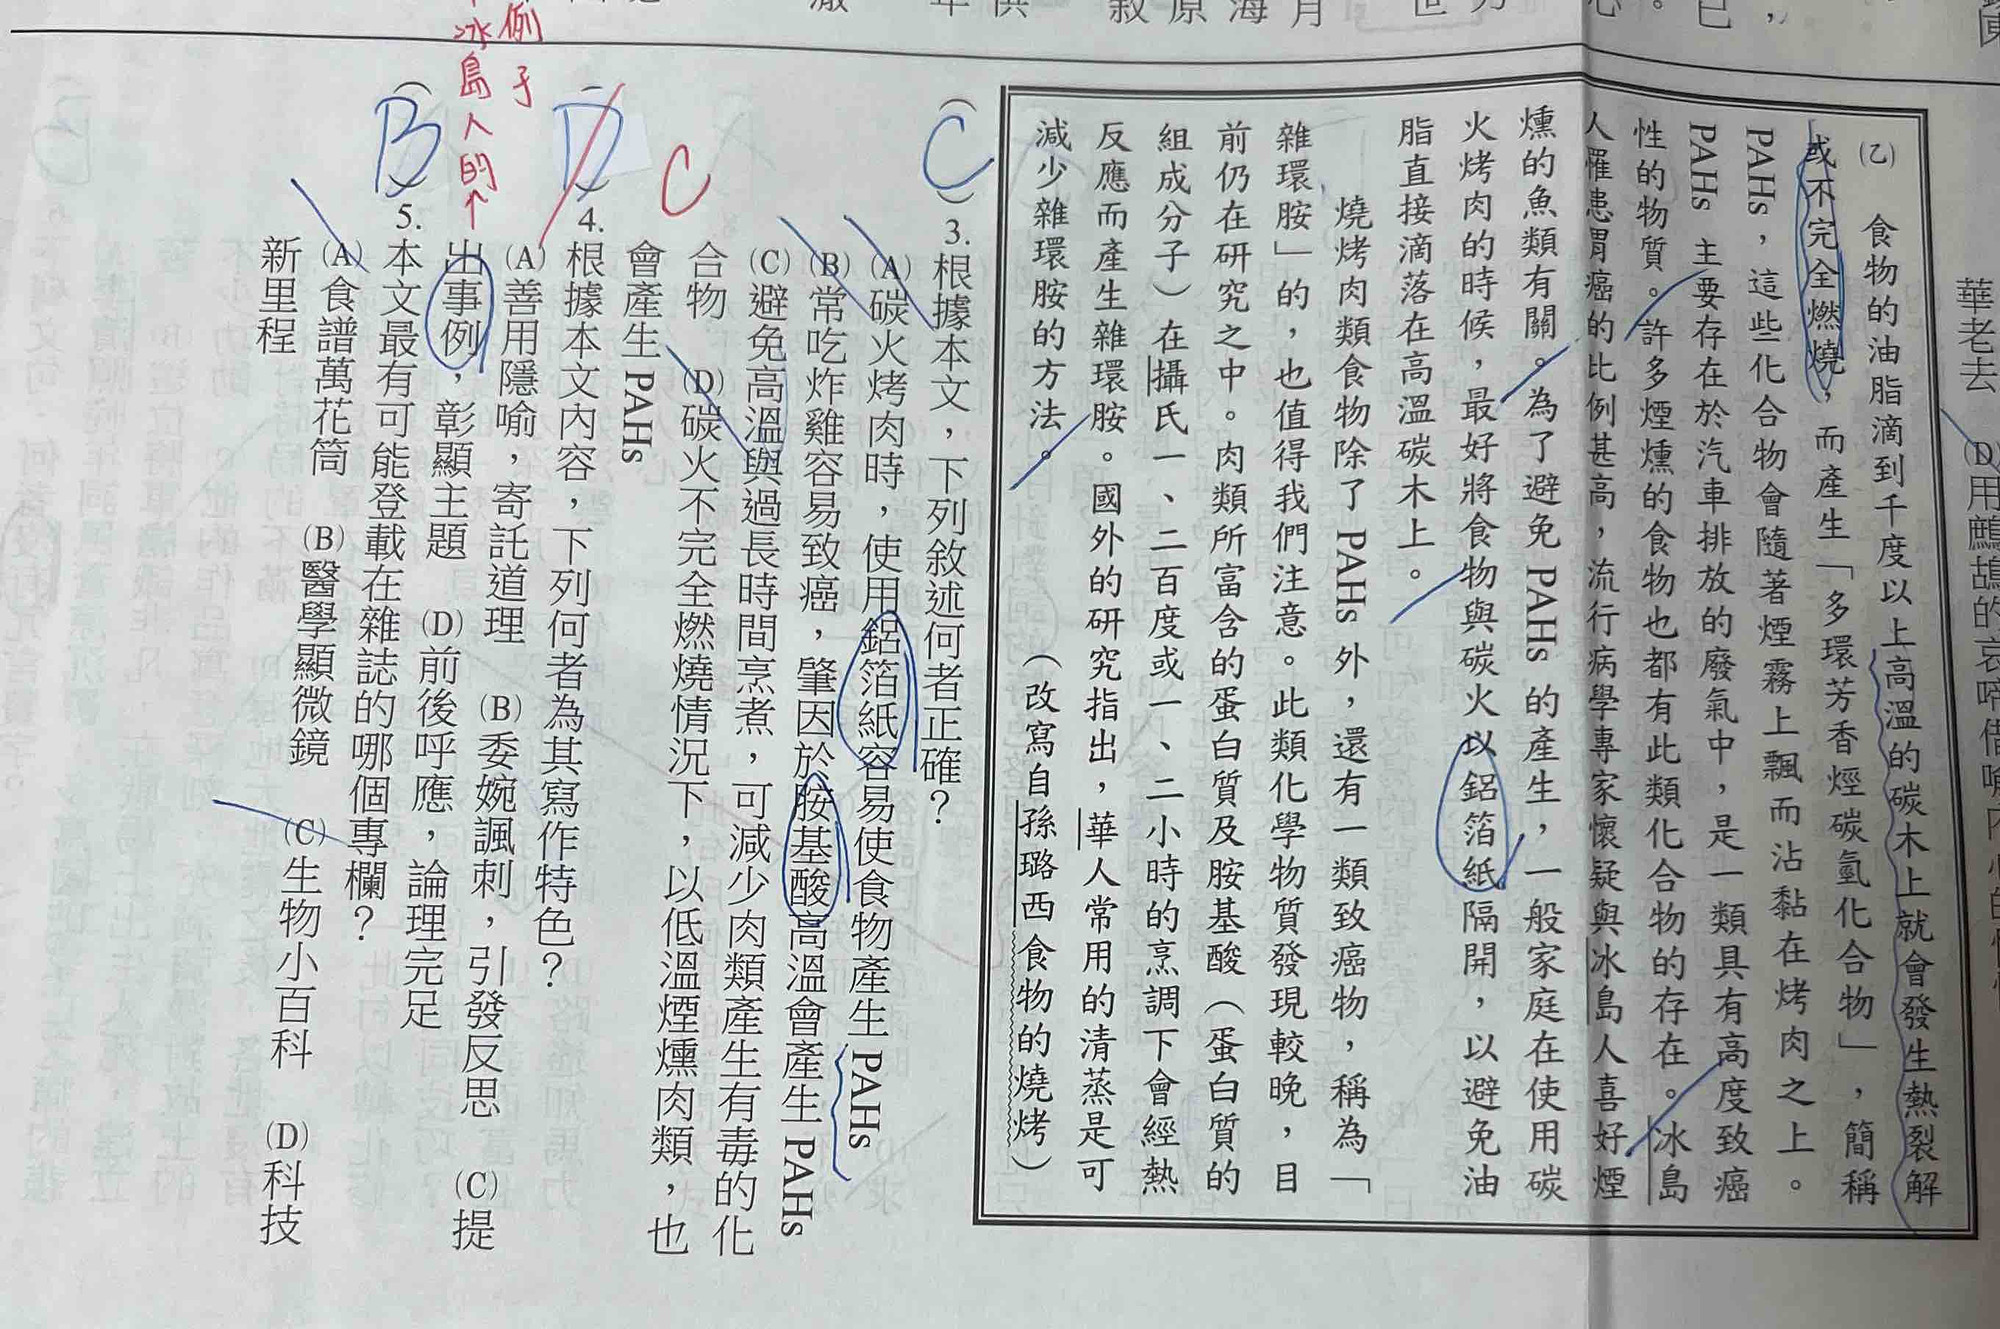 華老去
(D)用鷓鴣的哀啼借喻內心的
(乙)　食物的油脂滴到千度以上高溫的碳木上就會發生熱裂解
或不完全燃燒，而產生「多環芳香烴碳氫化合物」，簡稱
PAHs，這些化合物會隨著煙霧上飄而沾黏在烤肉之上。
PAHs 主要存在於汽車排放的廢氣中，是一類具有高度致癌
性的物質。許多煙燻的食物也都有此類化合物的存在。冰島
人罹患胃癌的比例甚高，流行病學專家懷疑與冰島人喜好煙
燻的魚類有關。為了避免 PAHs 的產生，一般家庭在使用碳
火烤肉的時候，最好將食物與碳火以鋁箔紙隔開，以避免油
脂直接滴落在高溫碳木上。
燒烤肉類食物除了 PAHs 外，還有一類致癌物，稱為「
雜環胺」的，也值得我們注意。此類化學物質發現較晚，目
前仍在研究之中。肉類所富含的蛋白質及胺基酸（蛋白質的
組成分子）在攝氏一、二百度或一、二小時的烹調下會經熱
反應而產生雜環胺。國外的研究指出，華人常用的清蒸是可
減少雜環胺的方法。（改寫自孫璐西食物的燒烤）
(C)3.根據本文，下列敘述何者正確？
(A)碳火烤肉時，使用鋁箔紙容易使食物產生 PAHs
(B)常吃炸雞容易致癌，肇因於胺基酸高溫會產生 PAHs
(C)避免高溫與過長時間烹煮，可減少肉類產生有毒的化
合物　(D)碳火不完全燃燒情況下，以低溫煙燻肉類，也
會產生 PAHs
C
(D)4.根據本文內容，下列何者為其寫作特色？
(A)善用隱喻，寄託道理　(B)委婉諷刺，引發反思　(C)提
出事例，彰顯主題　(D)前後呼應，論理完足
例子
冰島人的↑
(B)5.本文最有可能登載在雜誌的哪個專欄？
(A)食譜萬花筒　(B)醫學顯微鏡　(C)生物小百科　(D)科技
新里程